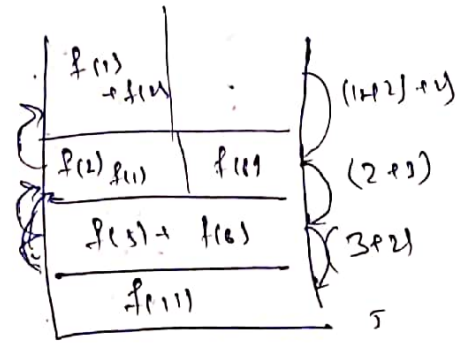 f(1)
+ f(2)
(1+2)+2)
f(2) f(1)
(2+3)
f(5) + f(6)
3+2)
f(11)
5